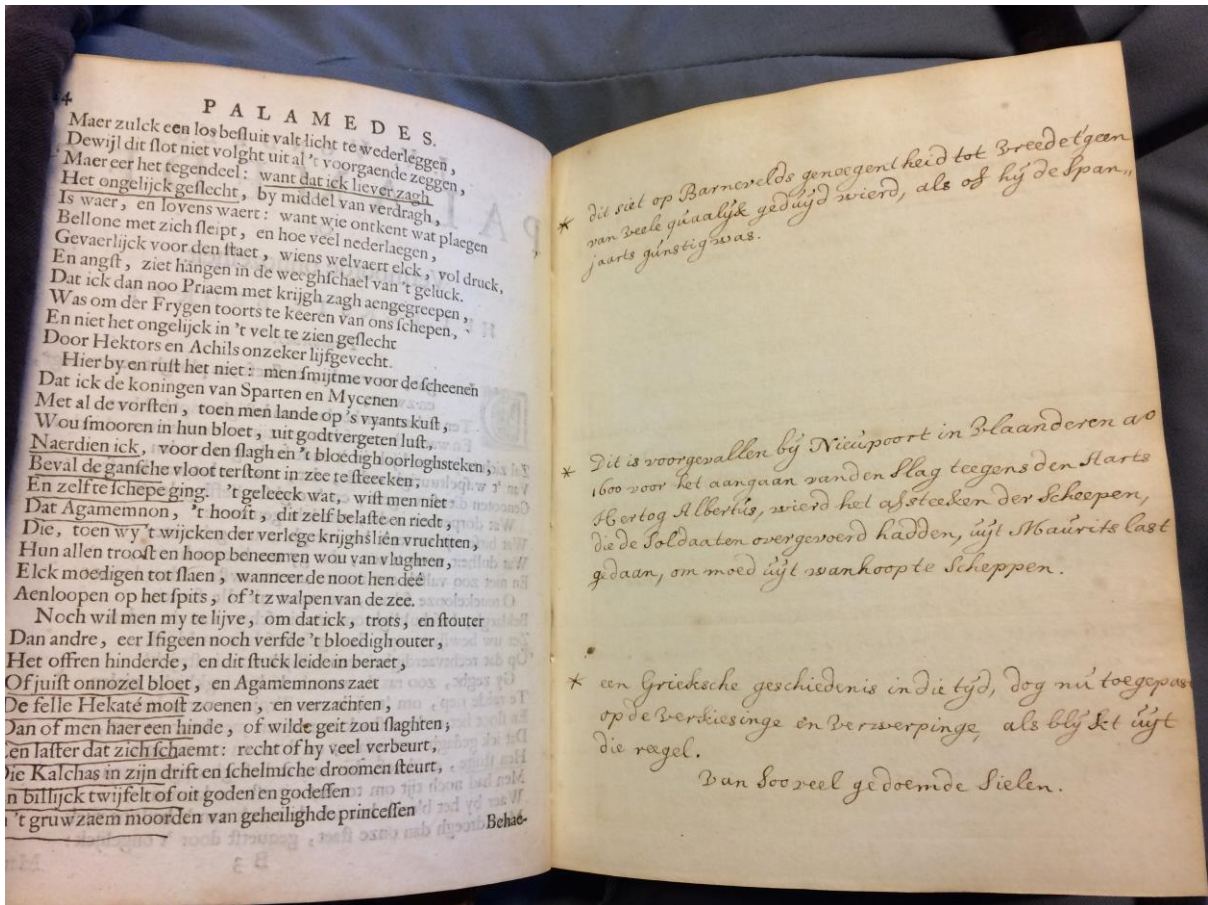 4
PALAMEDES.
Maer zulck een los besluit valt licht te wederleggen,
Dewijl dit slot niet volght uit al 't voorgaende zeggen,
Maer eer het tegendeel: want dat ick liever zagh
Het ongelijck geslecht, by middel van verdragh,
Is waer, en lovens waert: want wie ontkent wat plaegen
Bellone met zich sleipt, en hoe veel nederlaegen,
Gevaerlijck voor den staet, wiens welvaert elck, vol druck,
En angst, ziet hangen in de weeghschael van 't geluck.
Dat ick dan noo Priaem met krijgh zagh aengegreepen,
Was om der Frygen toorts te keeren van ons schepen,
En niet het ongelijck in 't velt te zien geslecht
Door Hektors en Achils onzeker lijfgevecht.
Hier by en rust het niet: men smijtme voor de scheenen
Dat ick de koningen van Sparten en Mycenen
Met al de vorsten, toen men lande op 's vyants kust,
Wou smooren in hun bloet, uit godtvergeten lust,
Naerdien ick, voor den slagh en 't bloedigh oorloghsteken,
Beval de gansche vloot terstont in zee te steecken,
En zelf te schepe ging. 't geleeck wat, wist men niet
Dat Agamemnon, 't hooft, dit zelf belaste en riedt,
Die, toen wy 't wijcken der verlege krijghsliên vruchtten,
Hun allen troost en hoop beneemen wou van vlughten,
Elck moedigen tot slaen, wanneer de noot hen deê
Aenloopen op het spits, of 't zwalpen van de zee.
Noch wil men my te lijve, om dat ick, trots, en stouter
Dan andre, eer Ifigeen noch verfde 't bloedigh outer,
Het offren hinderde, en dit stuck leide in beraet,
Of juist onnozel bloet, en Agamemnons zaet
De felle Hekaté most zoenen, en verzachten,
Dan of men haer een hinde, of wilde geit zou slaghten;
Een laster dat zich schaemt: recht of hy veel verbeurt,
Die Kalchas in zijn drift en schelmsche droomen steurt,
En billijck twijfelt of oit goden en godessen
't gruwzaem moorden van geheilighde princessen
Behae-
* dit siet op Barnevelds genoegentheid tot Vreede t'geen
van veele quaalyk geduyd wierd, als of hy de Span,,
jaarts gunstig was.
* Dit is voorgevallen by Nieupoort in Vlaanderen ao
1600 voor het aangaan vanden Slag teegens den Aarts
Hertog Albertus, wierd het afsteeken der Scheepen,
die de Soldaaten overgevoerd hadden, uyt Maurits last
gedaan, om moed uyt wanhoop te Scheppen.
* een Grieksche geschiedenis in die tyd, dog nu toegepas
op de Verkiesinge en Verwerpinge, als blykt uyt
die reegel.
Van Soo veel gedoemde Sielen.